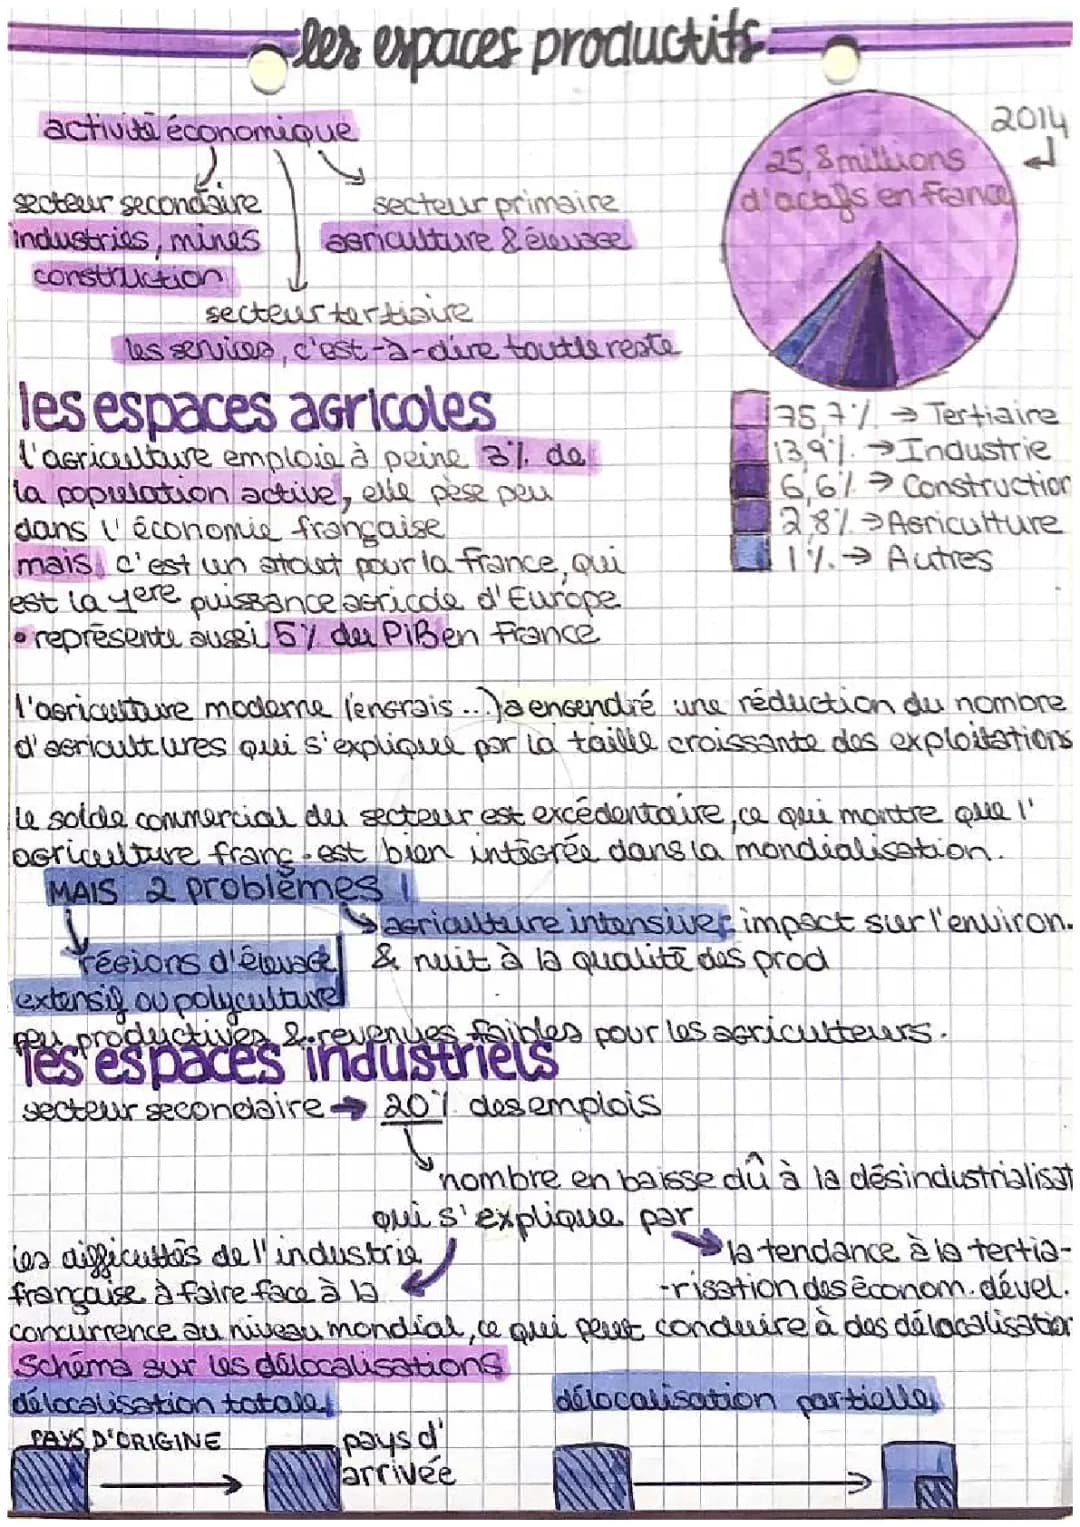 les espaces productifs
activité économique
2014
25,8 millions
d'actifs en France
secteur secondaire
industries, mines
construction
secteur primaire
agriculture & élevage
secteur tertiaire
les services, c'est-à-dire tout le reste
75,7% → Tertiaire
13,9% → Industrie
6,6% → Construction
2,8% → Agriculture
1% → Autres
les espaces agricoles
l'agriculture emploie à peine 3% de
la population active, elle pèse peu
dans l'économie française
mais c'est un atout pour la France, qui
est la 1ere puissance agricole d'Europe
• représente aussi 5% du PIB en France
l'agriculture moderne (engrais ...) a engendré une réduction du nombre
d'agricultures qui s'explique par la taille croissante des exploitations
le solde commercial du secteur est excédentaire, ce qui montre que l'
agriculture franç. est bien intégrée dans la mondialisation.
MAIS 2 problèmes !
agriculture intensive: impact sur l'environ.
& nuit à la qualité des prod
régions d'élevage
extensif ou polyculture
peu productives & revenues faibles pour les agriculteurs.
les espaces industriels
secteur secondaire → 20% des emplois
nombre en baisse dû à la désindustrialisat
qui s'explique par
les difficultés de l'industrie
française à faire face à la
concurrence au niveau mondial, ce qui peut conduire à des délocalisation
la tendance à la tertia-
-risation des économ. dével.
Schéma sur les délocalisations
délocalisation totale
PAYS D'ORIGINE
pays d'
arrivée
délocalisation partielle